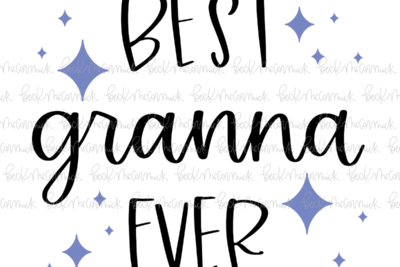 BEST
granna
EVER